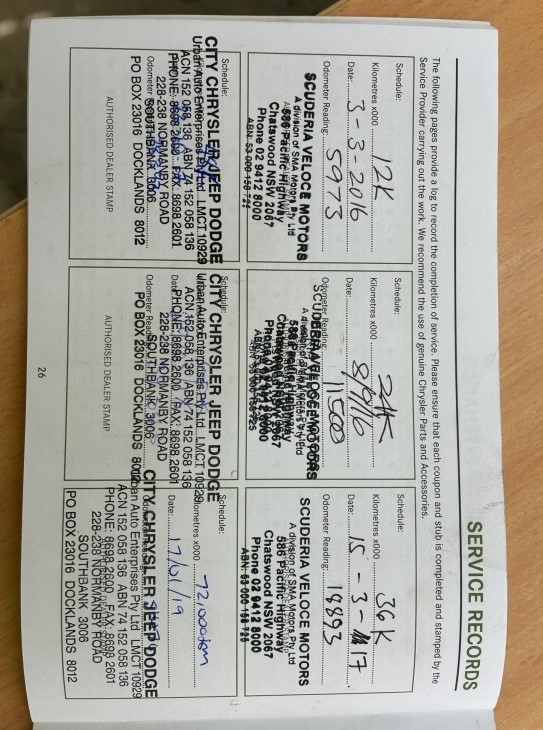 SERVICE RECORDS
The following pages provide a log to record the completion of service. Please ensure that each coupon and stub is completed and stamped by the
Service Provider carrying out the work. We recommend the use of genuine Chrysler Parts and Accessories.
Schedule:
Kilometres x000 12K
Date: 3-3-2016
Odometer Reading: 5973
SCUDERIA VELOCE MOTORS
A division of SMA Motors Pty Ltd
586 Pacific Highway
Chatswood NSW 2067
Phone 02 9412 8000
Schedule:
Kilometres x000 24K
Date: 8/9/16
Odometer Reading: 11500
Schedule:
Kilometres x000 36K
Date: 15-3-17
Odometer Reading: 19893
SCUDERIA VELOCE MOTORS
A division of SMA Motors Pty Ltd
586 Pacific Highway
Chatswood NSW 2067
Phone 02 9412 8000
Schedule:
CITY CHRYSLER JEEP DODGE
Urban Auto Enterprises Pty Ltd LMCT 10929
ACN 152 058 136 ABN 74 152 058 136
PHONE: 8698 2600 FAX: 8698 2601
228-238 NORMANBY ROAD
SOUTHBANK 3006
PO BOX 23016 DOCKLANDS 8012
AUTHORISED DEALER STAMP
Schedule:
CITY CHRYSLER JEEP DODGE
Urban Auto Enterprises Pty Ltd LMCT 10929
ACN 152 058 136 ABN 74 152 058 136
PHONE: 8698 2600 FAX: 8698 2601
228-238 NORMANBY ROAD
SOUTHBANK 3006
PO BOX 23016 DOCKLANDS 8012
AUTHORISED DEALER STAMP
Schedule:
Kilometres x000 72,000km
Date: 17/01/19
CITY CHRYSLER JEEP DODGE
Urban Auto Enterprises Pty Ltd LMCT 10929
ACN 152 058 136 ABN 74 152 058 136
PHONE: 8698 2600 FAX: 8698 2601
228-238 NORMANBY ROAD
SOUTHBANK 3006
PO BOX 23016 DOCKLANDS 8012
26